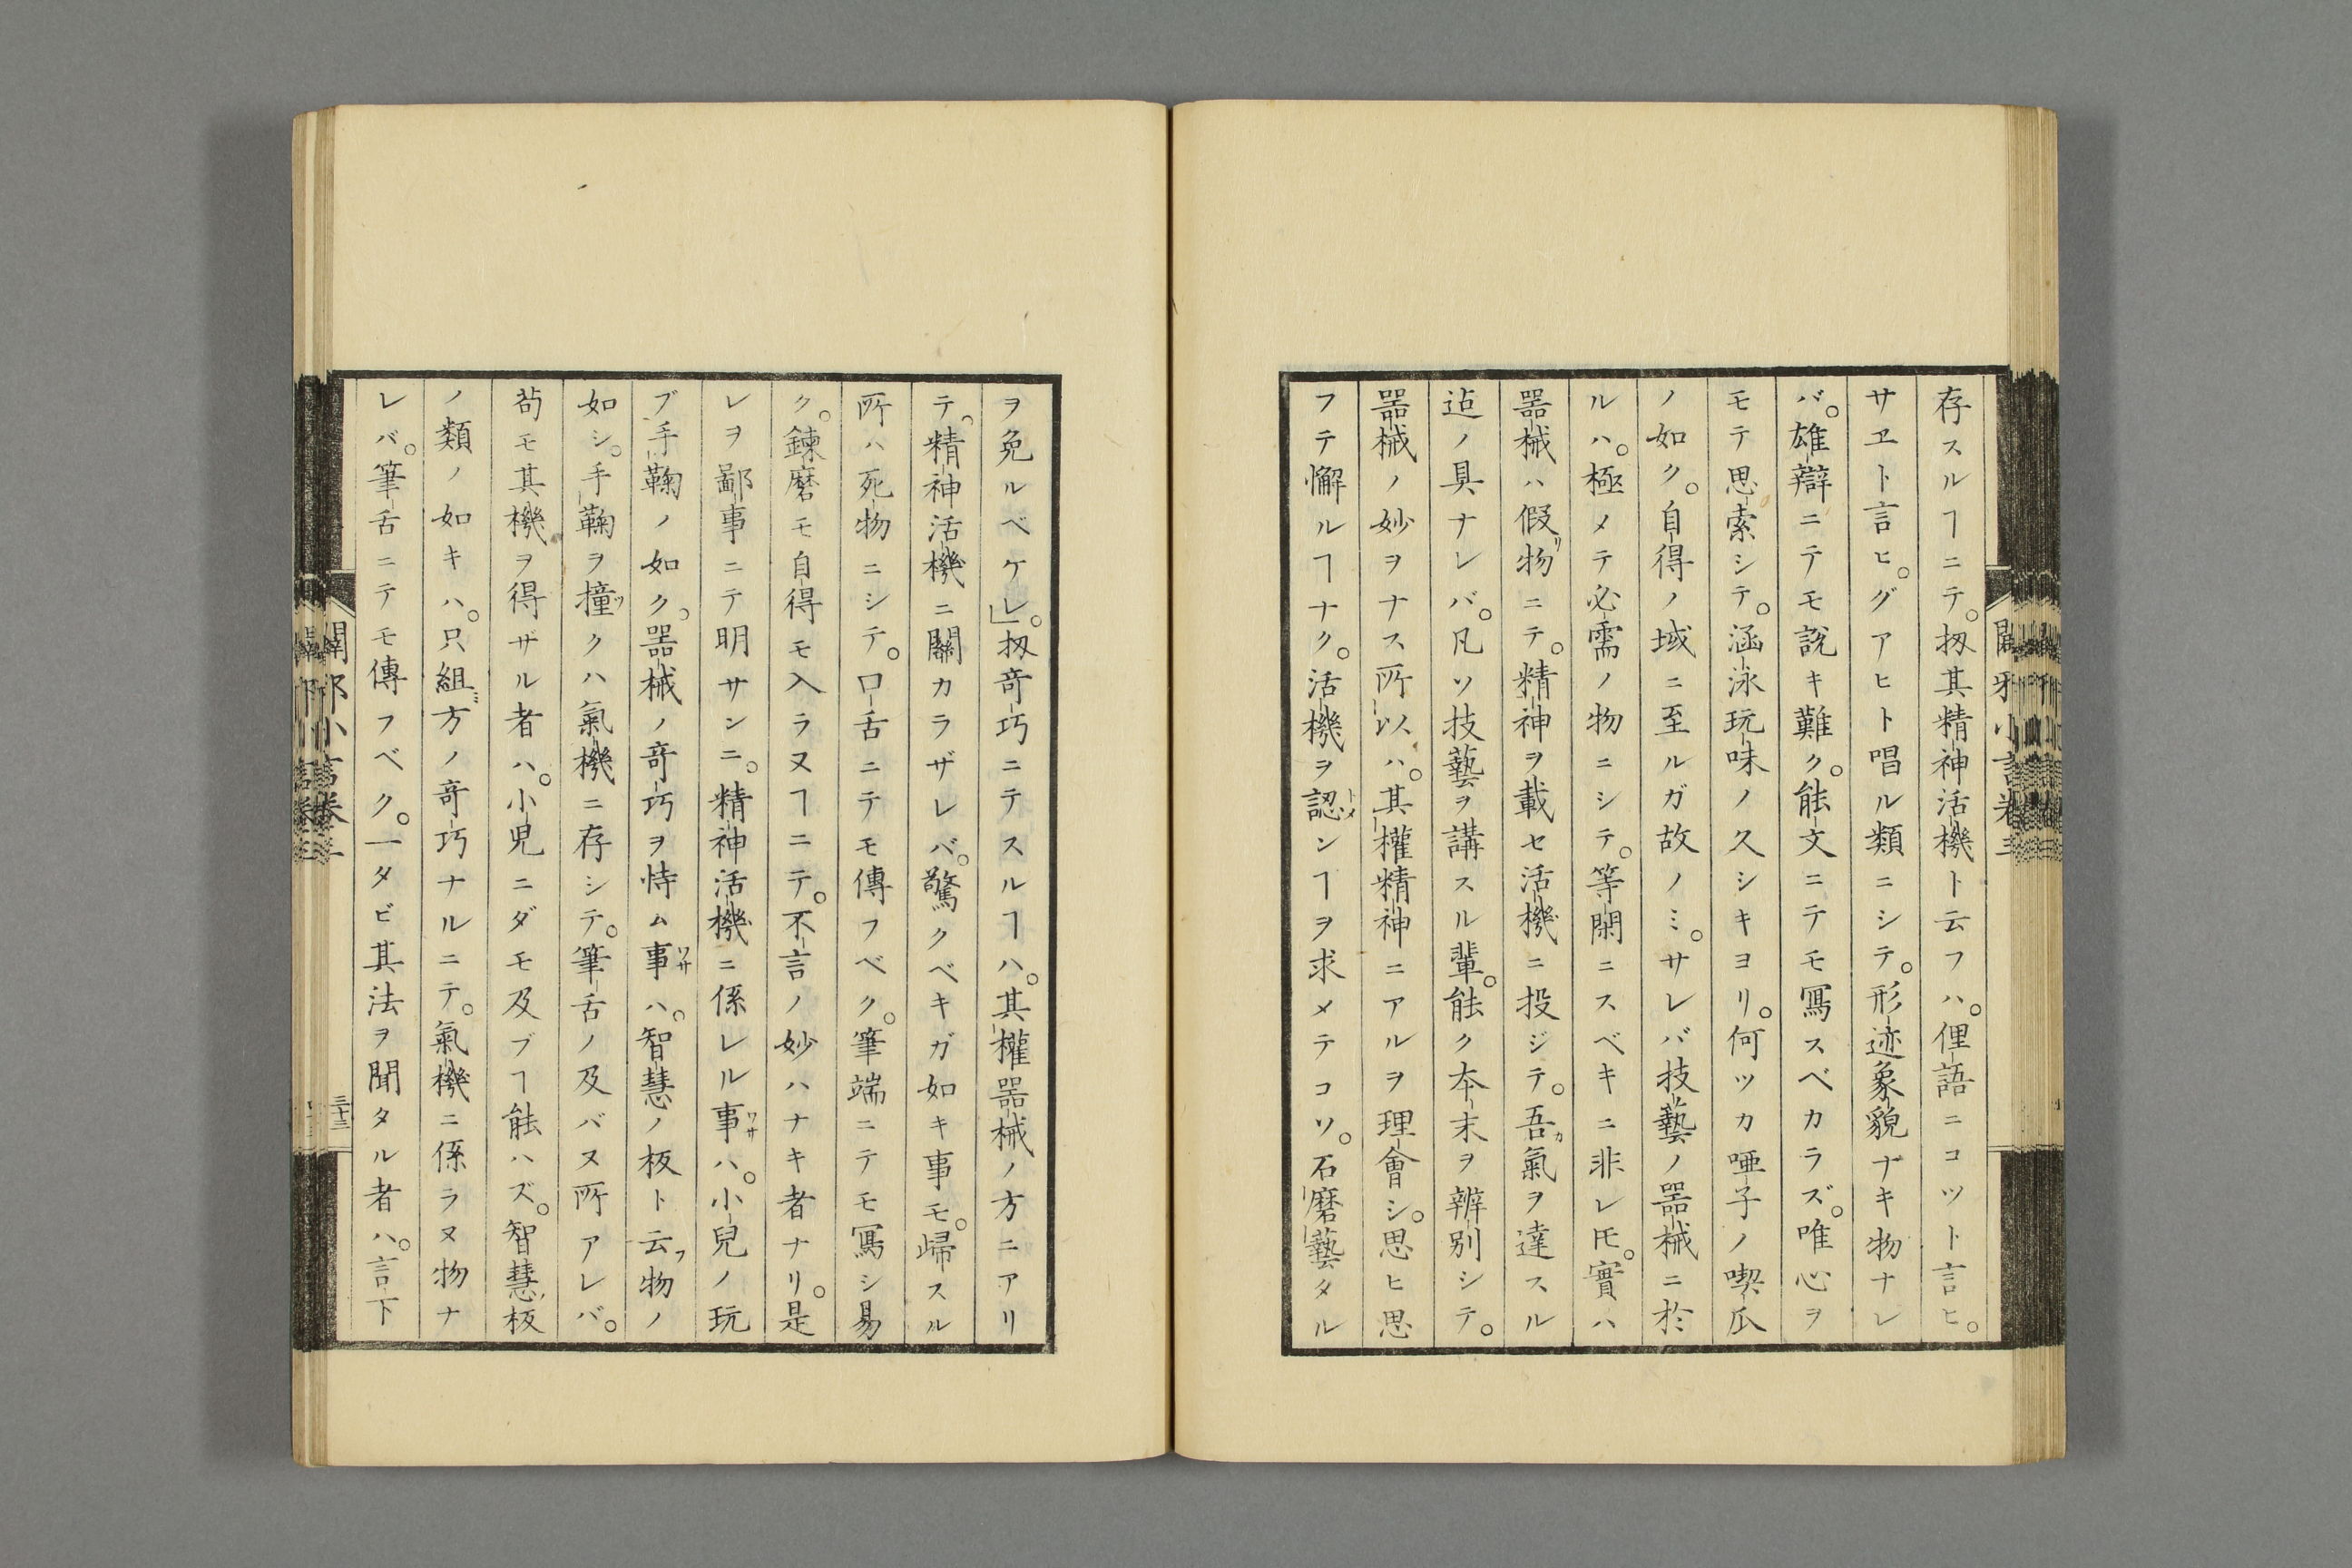 存スルヿニテ。扨其精神活機ト云フハ。俚語ニコツト言ヒ。
サヱト言ヒ。グアヒト唱ル類ニシテ。形迹象貌ナキ物ナレ
バ。雄辯ニテモ說キ難ク。能文ニテモ寫スベカラズ。唯心ヲ
モテ思索シテ。涵泳玩味ノ久シキヨリ。何ツカ啞子ノ喫瓜
ノ如ク。自得ノ域ニ至ルガ故ノミ。サレバ技藝ノ器械ニ於
ルハ。極メテ必需ノ物ニシテ。等閑ニスベキニ非レ𪜈。實ハ
器械ハ假リ物ニテ。精神ヲ載セ活機ニ投ジテ。吾カ氣ヲ達スル
迠ノ具ナレバ。凡ソ技藝ヲ講スル輩。能ク本末ヲ辨別シテ。
器械ノ妙ヲナス所以ハ。其權精神ニアルヲ理會シ。思ヒ思
フテ懈ルヿナク。活機ヲ認トメンヿヲ求メテコソ。石磨藝タル
ヲ免ルベケレ」。扨竒巧ニテスルヿハ。其權器械ノ方ニアリ
テ。精神活機ニ關カラザレバ。驚クベキガ如キ事モ。歸スル
所ハ死物ニシテ。口舌ニテモ傳フベク。筆端ニテモ寫シ易
ク。鍊磨モ自得モ入ラヌヿニテ。不言ノ妙ハナキ者ナリ。是
レヲ鄙事ニテ明サンニ。精神活機ニ係レル事ワサハ。小兒ノ玩
ブ手鞠ノ如ク。器械ノ竒巧ヲ恃ム事ワサハ。智慧ノ板ト云フ物ノ
如シ。手鞠ヲ撞ツクハ氣機ニ存シテ。筆舌ノ及バヌ所アレバ。
茍モ其機ヲ得ザル者ハ。小兒ニダモ及ブヿ能ハズ。智慧板
ノ類ノ如キハ。只組ミ方ノ竒巧ナルニテ。氣機ニ係ラヌ物ナ
レバ。筆舌ニテモ傳フベク。一タビ其法ヲ聞タル者ハ。言下
三十三